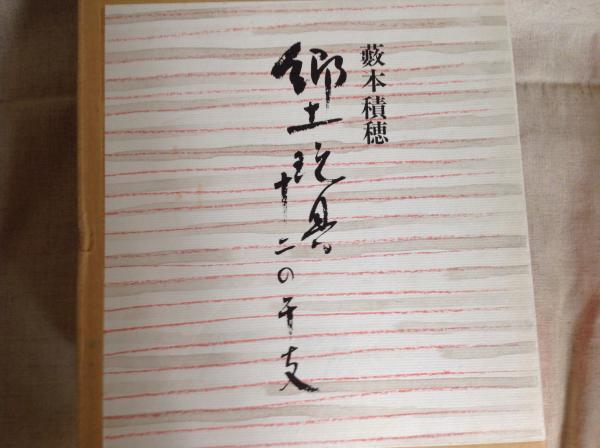 薮本積穂
郷土玩具
十二の干支